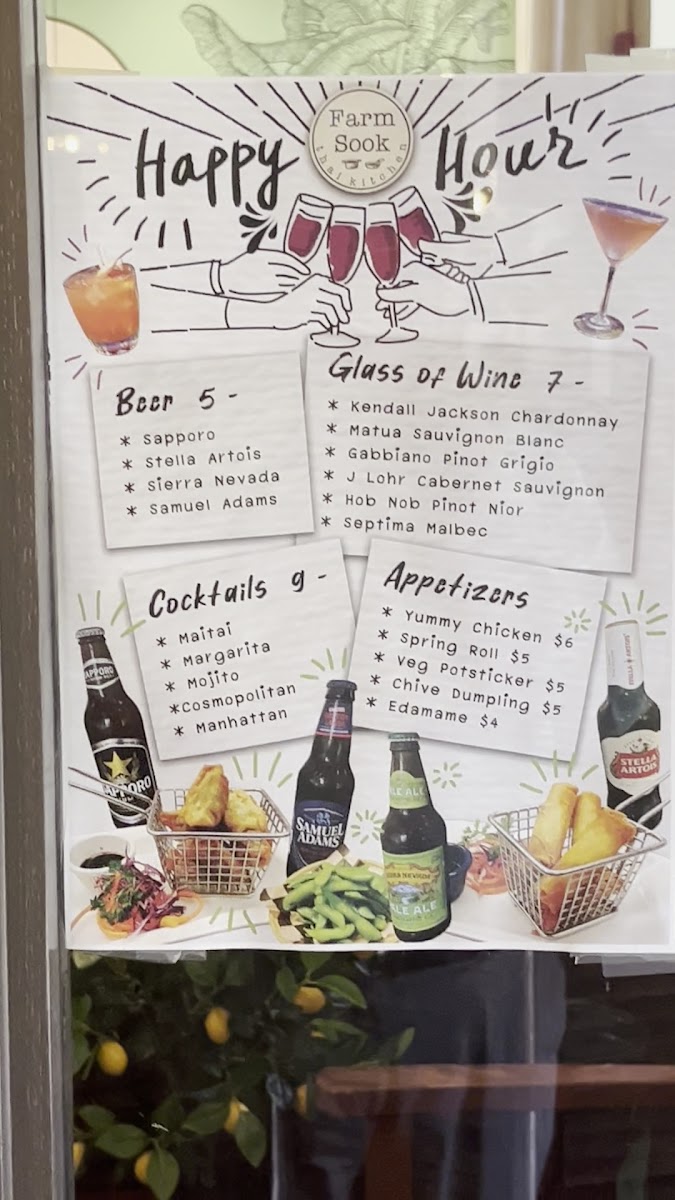 Farm
Sook
thai kitchen
Happy Hour
Beer 5 -
* Sapporo
* Stella Artois
* Sierra Nevada
* Samuel Adams
Glass of Wine 7 -
* Kendall Jackson Chardonnay
* Matua Sauvignon Blanc
* Gabbiano Pinot Grigio
* J Lohr Cabernet Sauvignon
* Hob Nob Pinot Nior
* Septima Malbec
Cocktails 9 -
* Maitai
* Margarita
* Mojito
*Cosmopolitan
* Manhattan
Appetizers
* Yummy Chicken $6
* Spring Roll $5
* Veg Potsticker $5
* Chive Dumpling $5
* Edamame $4
SAPPORO
SAPPORO
SAMUEL
ADAMS
PALE ALE
SIERRA NEVADA
PALE ALE
STELLA ARTOIS
STELLA
ARTOIS